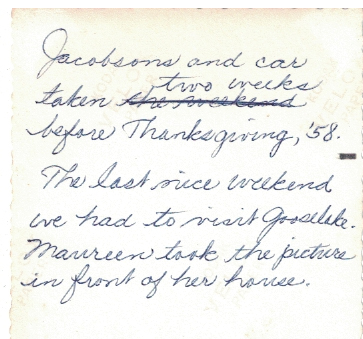 Jacobsons and car
two weeks
taken the weekend
before Thanksgiving, '58.
The last nice weekend
we had to visit Gooselake.
Maureen took the picture
in front of her house.